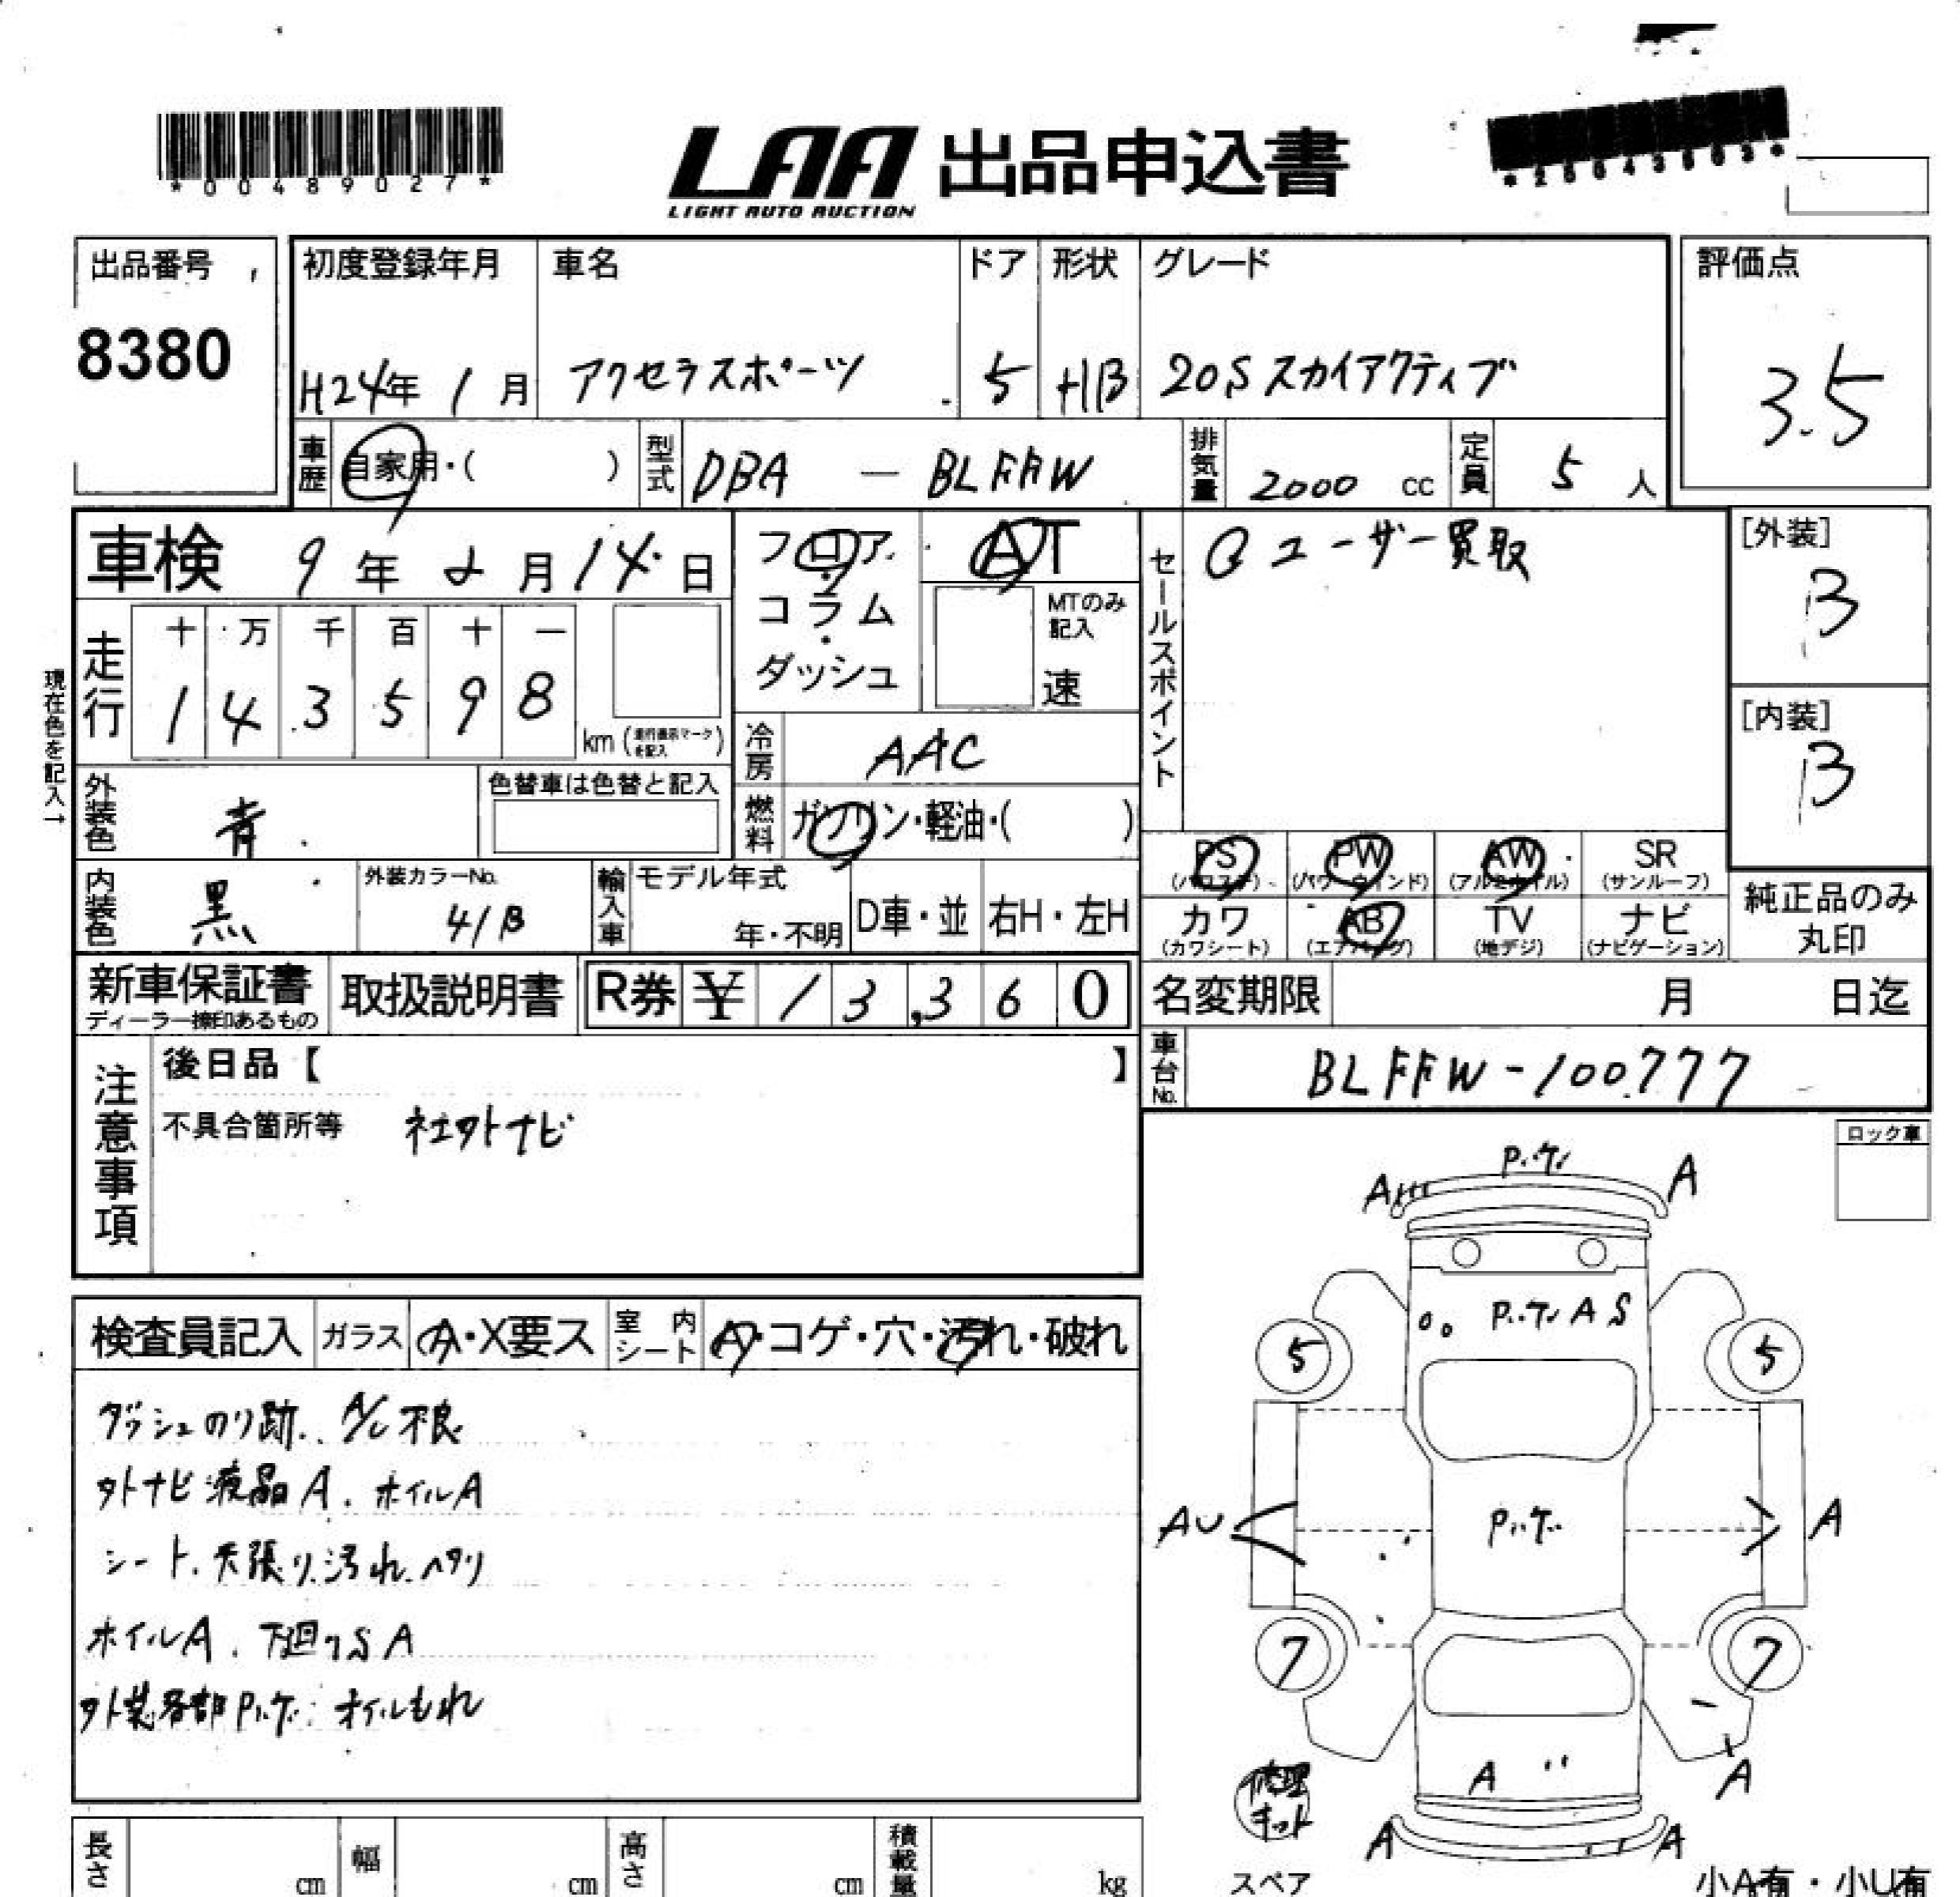 *00489027*
LAA 出品申込書
LIGHT AUTO AUCTION
*25643603*
出品番号
8380
初度登録年月
H24年 1月
車名
アクセラスポーツ
ドア
5
形状
HB
グレード
20Sスカイアクティブ
評価点
3.5
車歴
自家用・( )
型式
DBA — BLFFW
排気量
2000 cc
定員
5 人
車検 9年 2月 14日
フロア・コラム・ダッシュ
AT
MTのみ記入
速
セールスポイント
ユーザー買取
[外装]
B
[内装]
B
現在色を記入→
走行
十 万 千 百 十 一
1 4 3 5 9 8
km (走行表示マークを記入)
冷房
AAC
燃料
ガソリン・軽油・( )
外装色
青
色替車は色替と記入
内装色
黒
外装カラーNo.
41B
輸入車
モデル年式
年・不明
D車・並
右H・左H
PS
(パワステ)
PW
(パワーウィンド)
AW
(アルミホイル)
SR
(サンルーフ)
カワ
(カワシート)
AB
(エアバッグ)
TV
(地デジ)
ナビ
(ナビゲーション)
純正品のみ丸印
新車保証書
ディーラー捺印あるもの
取扱説明書
R券 ¥ 13,360
名変期限 月 日迄
車台No.
BLFFW-100777
注意事項
後日品【 】
不具合箇所等 社外ナビ
ロック車
検査員記入
ガラス
A・X要ス
室内シート
A・コゲ・穴・汚れ・破れ
ダッシュのり跡. A/C不良
外ナビ液晶A. ホイルA
シート、天張り汚れ、ヘタリ
ホイルA. 下廻りSA
外装各部P.ケ. オイルもれ
P.ケ
A
A
P.ケ A S
5
5
AU
P.ケ
A
7
7
A
A
修理キット
A
A
スペア
小A有・小U有
長さ
cm
幅
cm
高さ
cm
積載量
kg